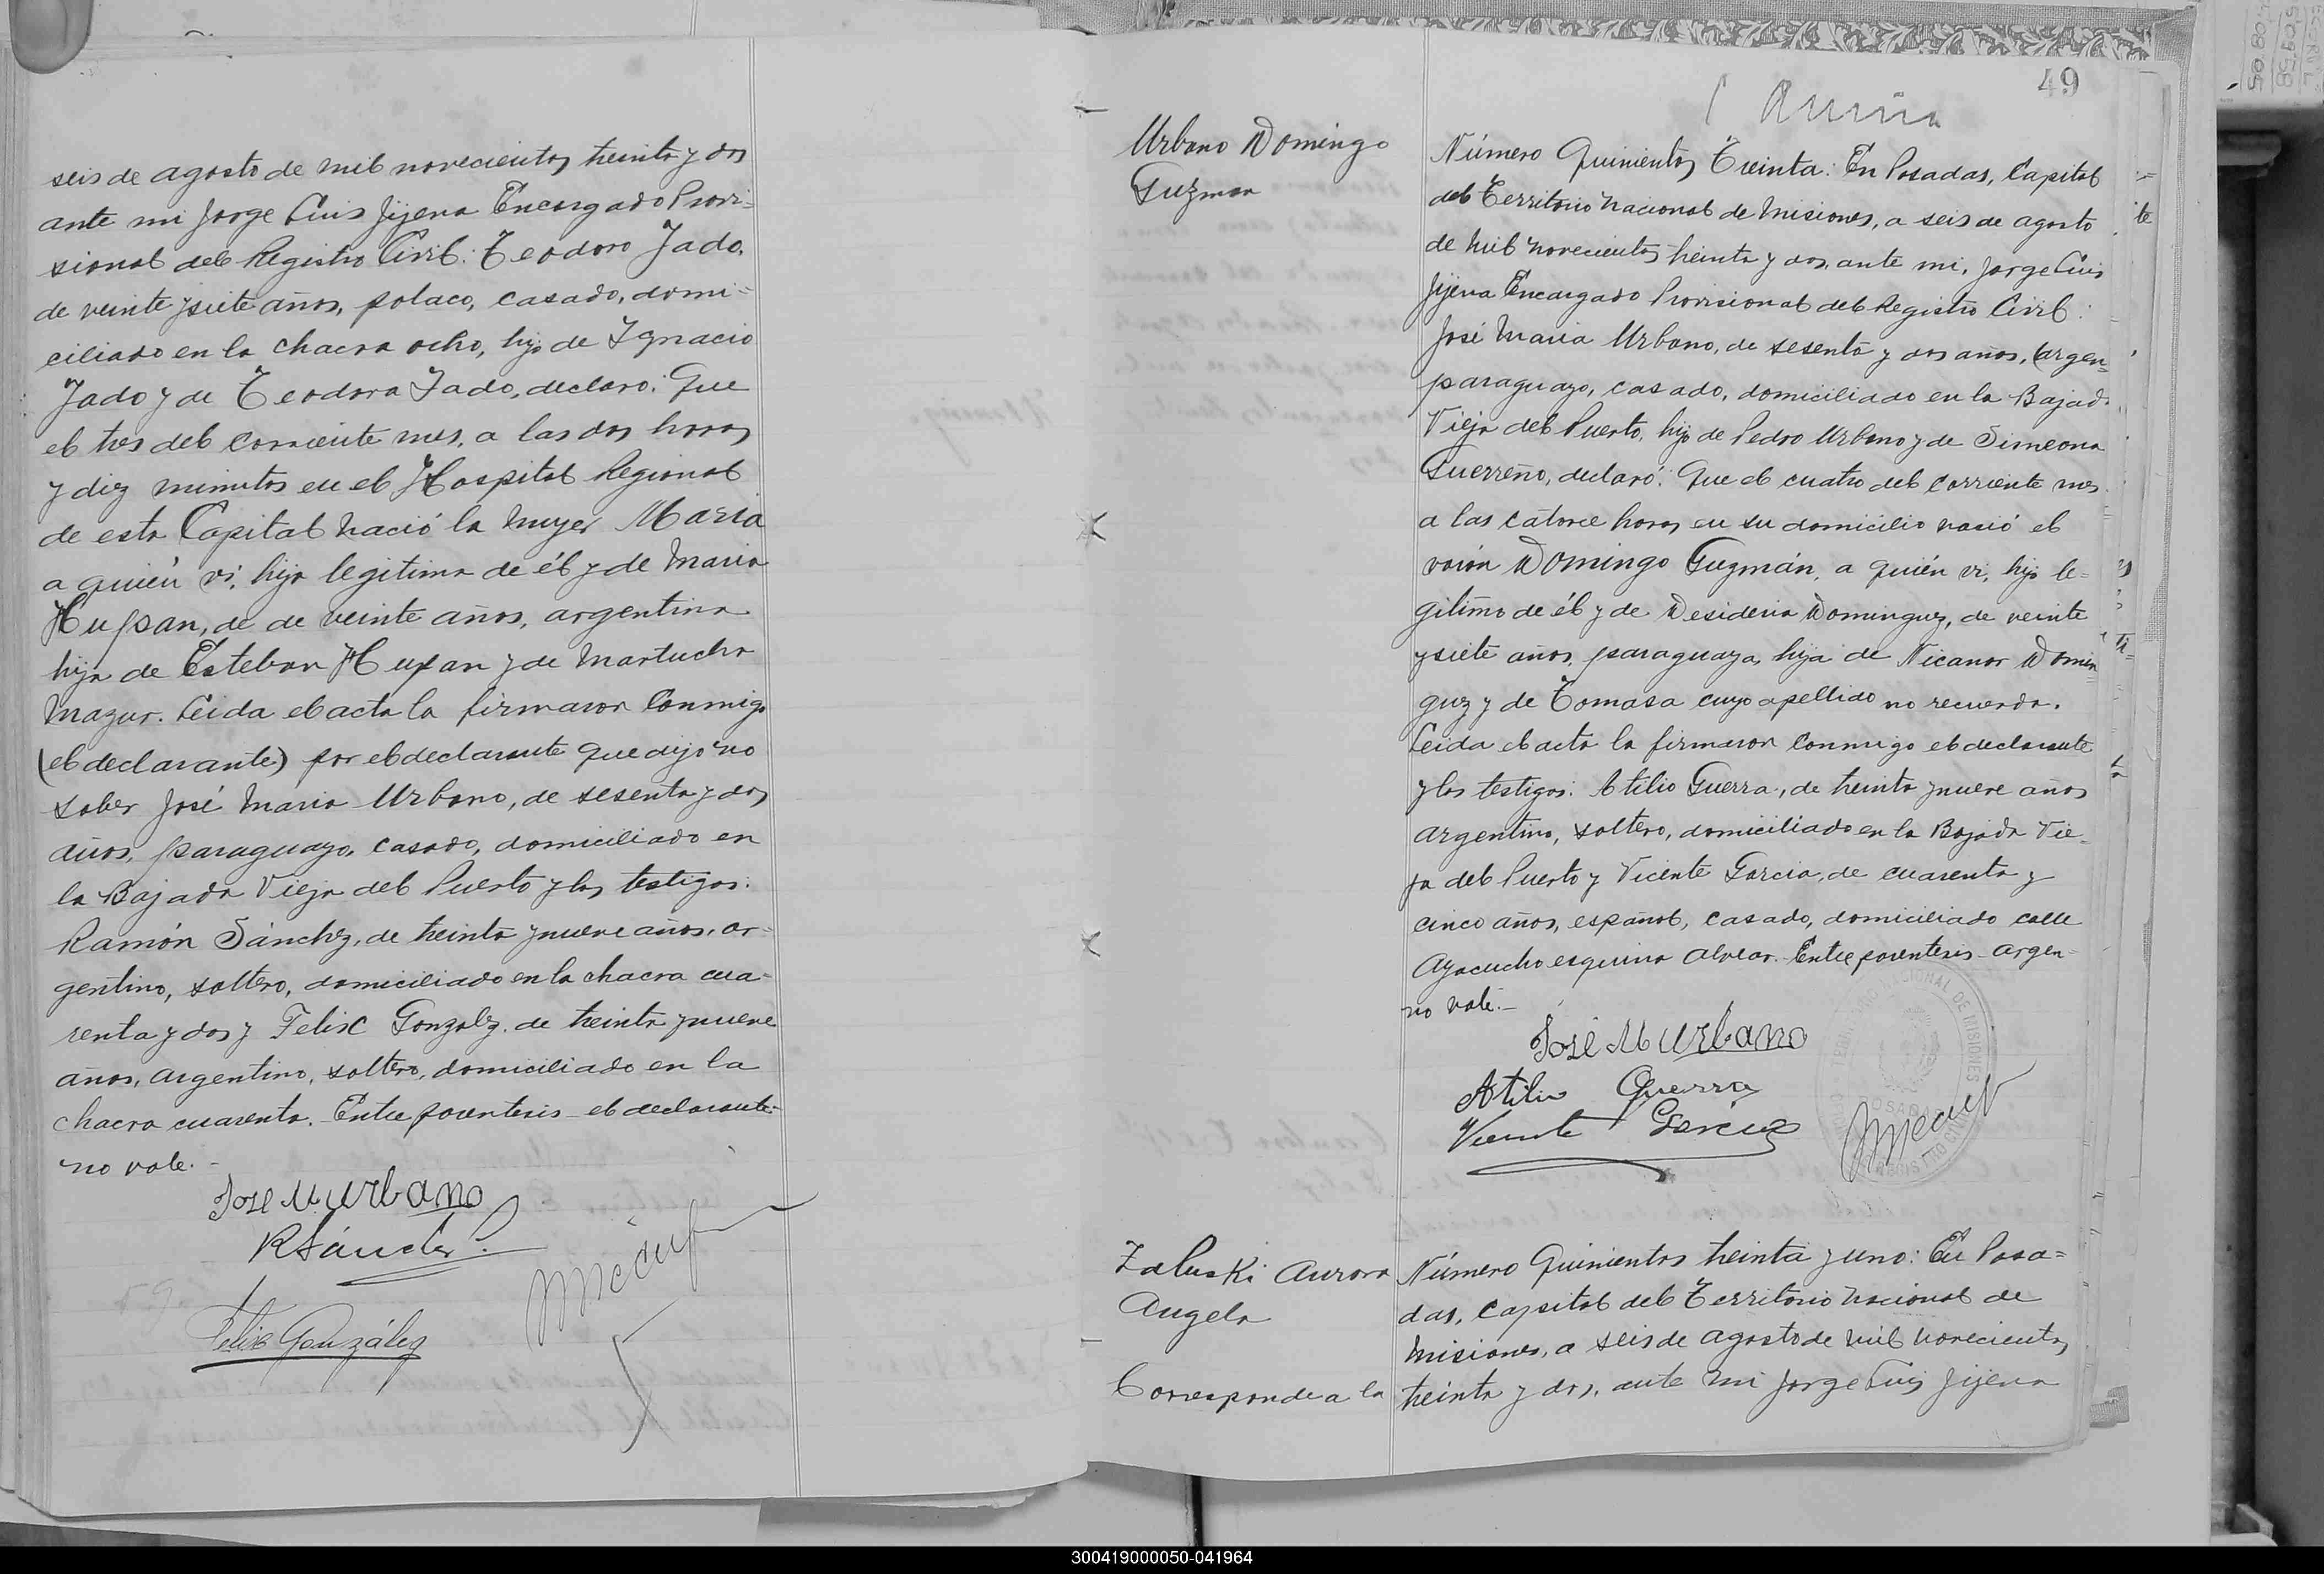 seis de agosto de mil novecientos treinta y dos
ante mi Jorge Luis Jijena Encargado Provi-
sional del Registro Civil: Teodoro Jado,
de veinte y siete años, polaco, casado, domi-
ciliado en la chacra ocho, hijo de Ignacio
Jado y de Teodora Jado, declaro: Que
el tres del corriente mes, a las dos horas
y diez minutos en el Hospital Regional
de esta Capital nació la mujer Maria
a quién vi, hija legitima de él y de Maria
Hupan, de de veinte años, argentina
hija de Esteban Hupan y de Martucha
Mazur. Leida el acta la firmaron conmigo
(el declarante) por el declarante que dijo no
saber José Maria Urbano, de sesenta y dos
años, paraguayo, casado, domiciliado en
la Bajada Vieja del Puerto y los testigos:
Ramón Sánchez, de treinta y nueve años, ar-
gentino, soltero, domiciliado en la chacra cua-
renta y dos y Felix Gonzalez, de treinta y nueve
años, argentino, soltero, domiciliado en la
chacra cuarenta. Entre parentesis - el declarante-
no vale.-
José M Urbano
R Sánchez
Felix González
49
Urbano Domingo
Guzman
Número Quinientos Treinta: En Posadas, Capital
del Territorio Nacional de Misiones, a seis de agosto
de mil novecientos treinta y dos, ante mi, Jorge Luis
Jijena Encargado Provisional del Registro Civil:
José Maria Urbano, de sesenta y dos años, (argen-
paraguayo, casado, domiciliado en la Bajada
Vieja del Puerto, hijo de Pedro Urbano y de Simeona
Guerreño, declaró: Que el cuatro del corriente mes
a las catorce horas en su domicilio nació el
varón Domingo Guzmán, a quién vi, hijo le-
gitimo de él y de Desideria Dominguez, de veinte
y siete años, paraguaya, hija de Nicanor Domin
guez y de Tomasa cuyo apellido no recuerda.
Leida el acta la firmaron conmigo el declarante
y los testigos: Atilio Guerra, de treinta y nueve años
argentino, soltero, domiciliado en la Bajada Vie-
ja del Puerto y Vicente Garcia, de cuarenta y
cinco años, español, casado, domiciliado calle
Ayacucho esquina Alvear. Entre parentesis - argen-
no vale.-
José M Urbano
Atilio Guerra
Vicente Garcia
Zaluski Aurora
Angela
Corresponde a la
Número Quinientos treinta y uno: En Posa-
das, Capital del Territorio Nacional de
Misiones, a seis de agosto de mil novecientos
treinta y dos, ante mi Jorge Luis Jijena
300419000050-041964